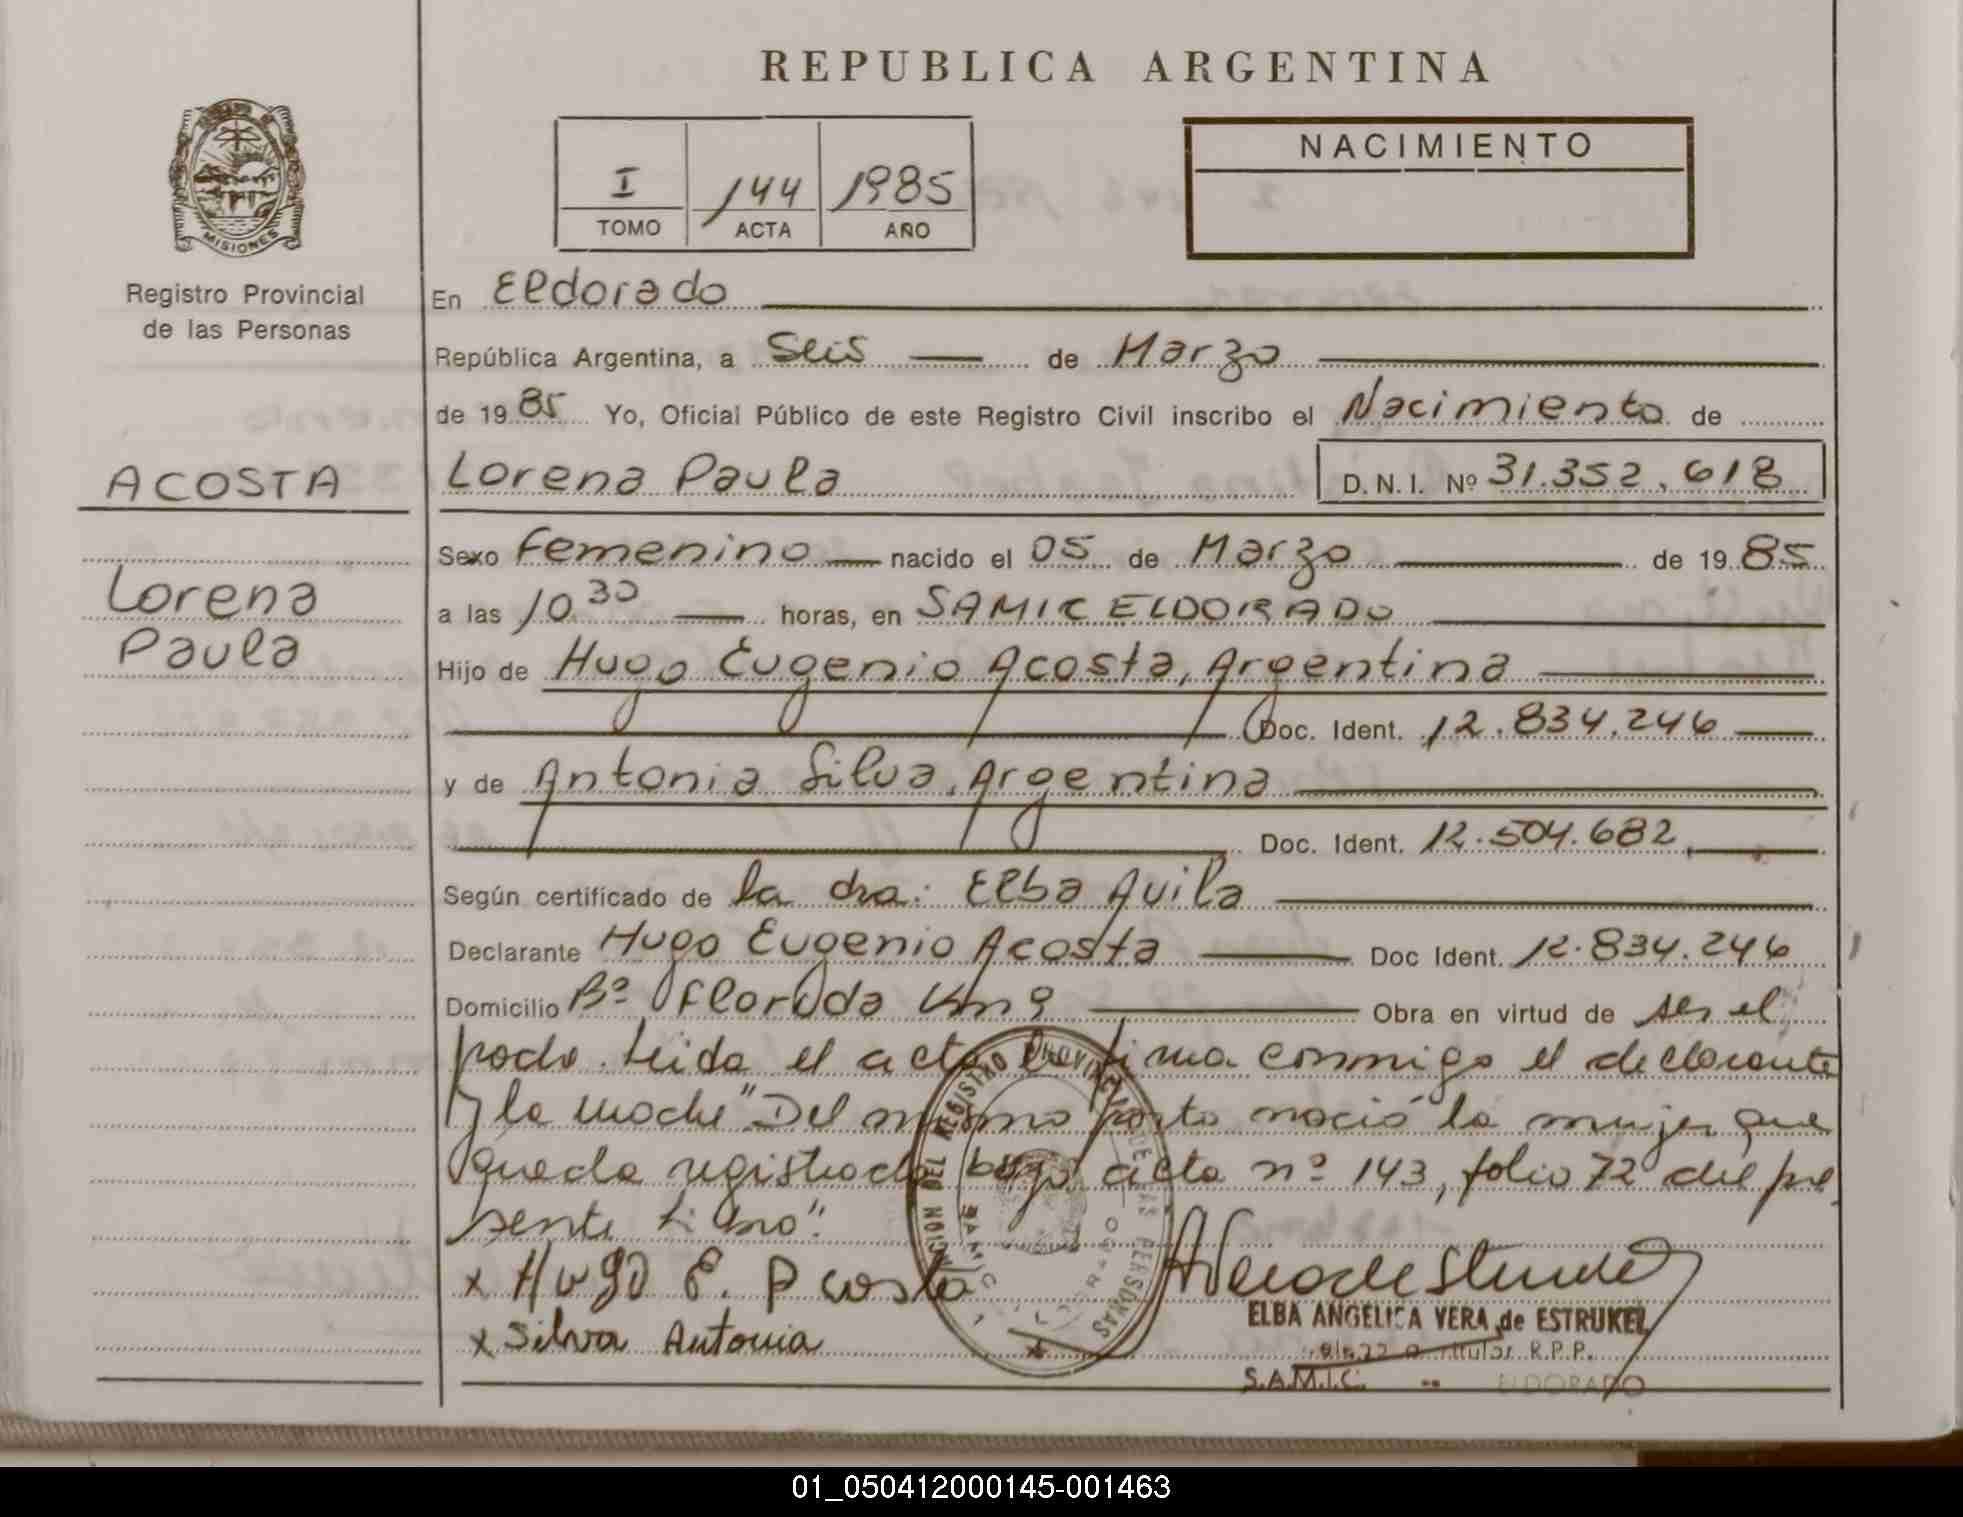 REPUBLICA ARGENTINA
NACIMIENTO
I 144 1985
TOMO ACTA AÑO
MISIONES
Registro Provincial
de las Personas
En Eldorado
República Argentina, a Seis de Marzo
de 1985 Yo, Oficial Público de este Registro Civil inscribo el Nacimiento de
ACOSTA
Lorena Paula D.N.I. Nº 31.352.618
Sexo Femenino nacido el 05 de Marzo de 1985
Lorena
Paula
a las 10 30 horas, en SAMIC ELDORADO
Hijo de Hugo Eugenio Acosta, Argentina
Doc. Ident. 12.834.246
y de Antonia Silva, Argentina
Doc. Ident. 12.504.682
Según certificado de la dra: Elba Avila
Declarante Hugo Eugenio Acosta Doc Ident. 12.834.246
Domicilio Bº Florida Km 9 Obra en virtud de ser el
padre. Leida el acta la firma conmigo el declarante
y la madre "Del mismo parto nació la mujer que
queda registrada bajo acta nº 143, folio 72 del pre
sente Libro".
x Hugo E. Acosta
x Silva Antonia
ELBA ANGELICA VERA de ESTRUKEL
Titular R.P.P.
S.A.M.I.C. ELDORADO
01_050412000145-001463